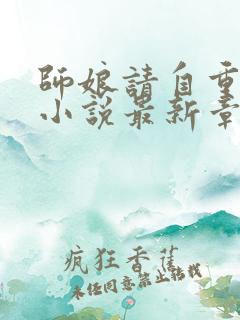 師娘請自重
小說最新章
疯狂香蕉
未经同意禁止转载